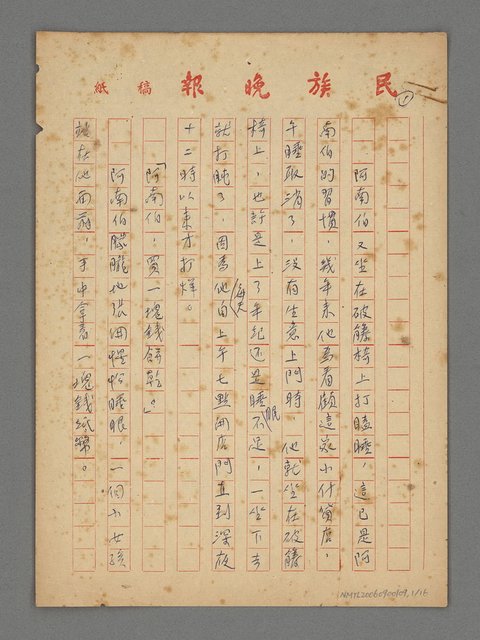 民族晚報稿紙
①
阿南伯又坐在破籐椅上打瞌睡,這已是阿
南伯的習慣,幾年來他為看顧這家小什貨店,
午睡取消了,沒有生意上門時,他就坐在破籐
椅上,也許是上了年紀還是睡眠不足,一坐下去
就打盹了,因為他每天由上午七點開店門直到深夜
十二時以來才打烊。
「阿南伯,買一塊錢餅乾。」
阿南伯朦朧地張開惺忪睡眼,一個小女孩
站在他面前,手中拿著一塊錢紙幣。
NMTL20060900109, 1/16